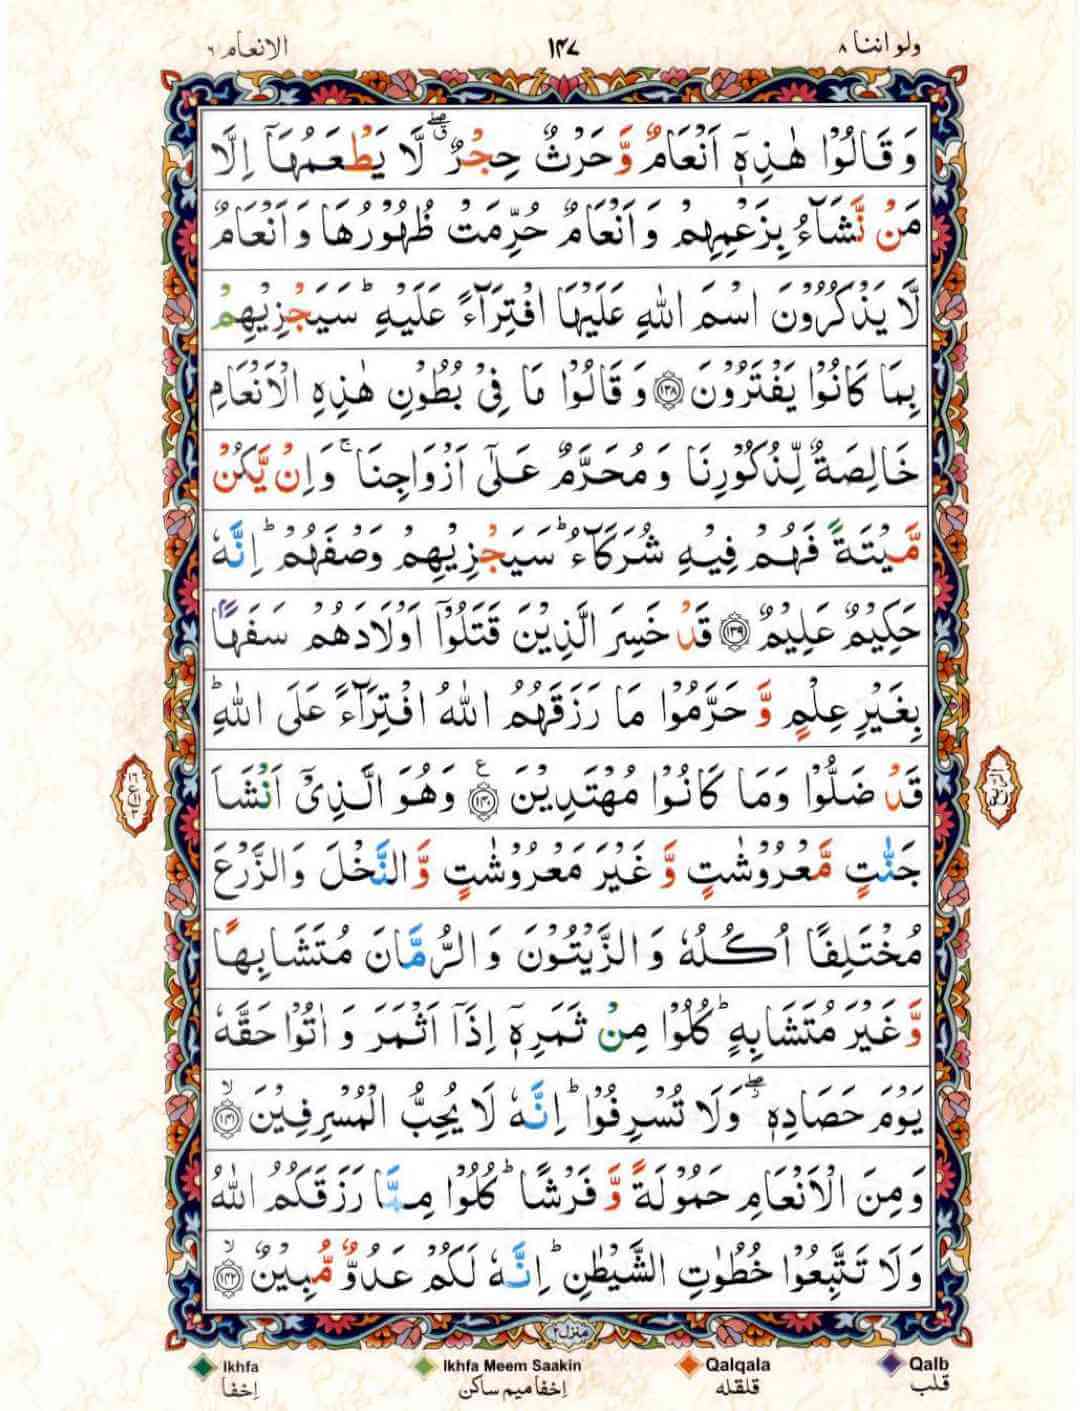 ولو اننا ٨ ١٤٧ الانعام ٦
وَ قَالُوْا هٰذِهٖۤ اَنْعَامٌ وَّ حَرْثٌ حِجْرٌ ۖۗ لَّا يَطْعَمُهَاۤ اِلَّا
مَنْ نَّشَآءُ بِزَعْمِهِمْ وَ اَنْعَامٌ حُرِّمَتْ ظُهُوْرُهَا وَ اَنْعَامٌ
لَّا يَذْكُرُوْنَ اسْمَ اللّٰهِ عَلَيْهَا افْتِرَآءً عَلَيْهِ ؕ سَيَجْزِيْهِمْ
بِمَا كَانُوْا يَفْتَرُوْنَ ﴿۱۳۸﴾ وَ قَالُوْا مَا فِیْ بُطُوْنِ هٰذِهِ الْاَنْعَامِ
خَالِصَةٌ لِّذُكُوْرِنَا وَ مُحَرَّمٌ عَلٰۤی اَزْوَاجِنَا ۚ وَ اِنْ يَّكُنْ
مَّيْتَةً فَهُمْ فِيْهِ شُرَكَآءُ ؕ سَيَجْزِيْهِمْ وَصْفَهُمْ ؕ اِنَّهٗ
حَكِيْمٌ عَلِيْمٌ ﴿۱۳۹﴾ قَدْ خَسِرَ الَّذِيْنَ قَتَلُوْۤا اَوْلَادَهُمْ سَفَهًۢا
بِغَيْرِ عِلْمٍ وَّ حَرَّمُوْا مَا رَزَقَهُمُ اللّٰهُ افْتِرَآءً عَلَی اللّٰهِ ؕ
قَدْ ضَلُّوْا وَمَا كَانُوْا مُهْتَدِيْنَ ﴿۱۴۰﴾ ع وَهُوَ الَّذِیْۤ اَنْشَاَ
جَنّٰتٍ مَّعْرُوْشٰتٍ وَّ غَيْرَ مَعْرُوْشٰتٍ وَّ النَّخْلَ وَ الزَّرْعَ
مُخْتَلِفًا اُكُلُهٗ وَ الزَّيْتُوْنَ وَ الرُّمَّانَ مُتَشَابِهًا
وَّ غَيْرَ مُتَشَابِهٍ ؕ كُلُوْا مِنْ ثَمَرِهٖۤ اِذَاۤ اَثْمَرَ وَ اٰتُوْا حَقَّهٗ
يَوْمَ حَصَادِهٖ ۖؗ وَلَا تُسْرِفُوْا ؕ اِنَّهٗ لَا يُحِبُّ الْمُسْرِفِيْنَ ۙ﴿۱۴۱﴾
وَ مِنَ الْاَنْعَامِ حَمُوْلَةً وَّ فَرْشًا ؕ كُلُوْا مِمَّا رَزَقَكُمُ اللّٰهُ
وَلَا تَتَّبِعُوْا خُطُوٰتِ الشَّيْطٰنِ ؕ اِنَّهٗ لَكُمْ عَدُوٌّ مُّبِيْنٌ ۙ﴿۱۴۲﴾
منزل ٢
Ikhfa Ikhfa Meem Saakin Qalqala Qalb
اِخفا اِخفا میم ساکن قلقله قلب